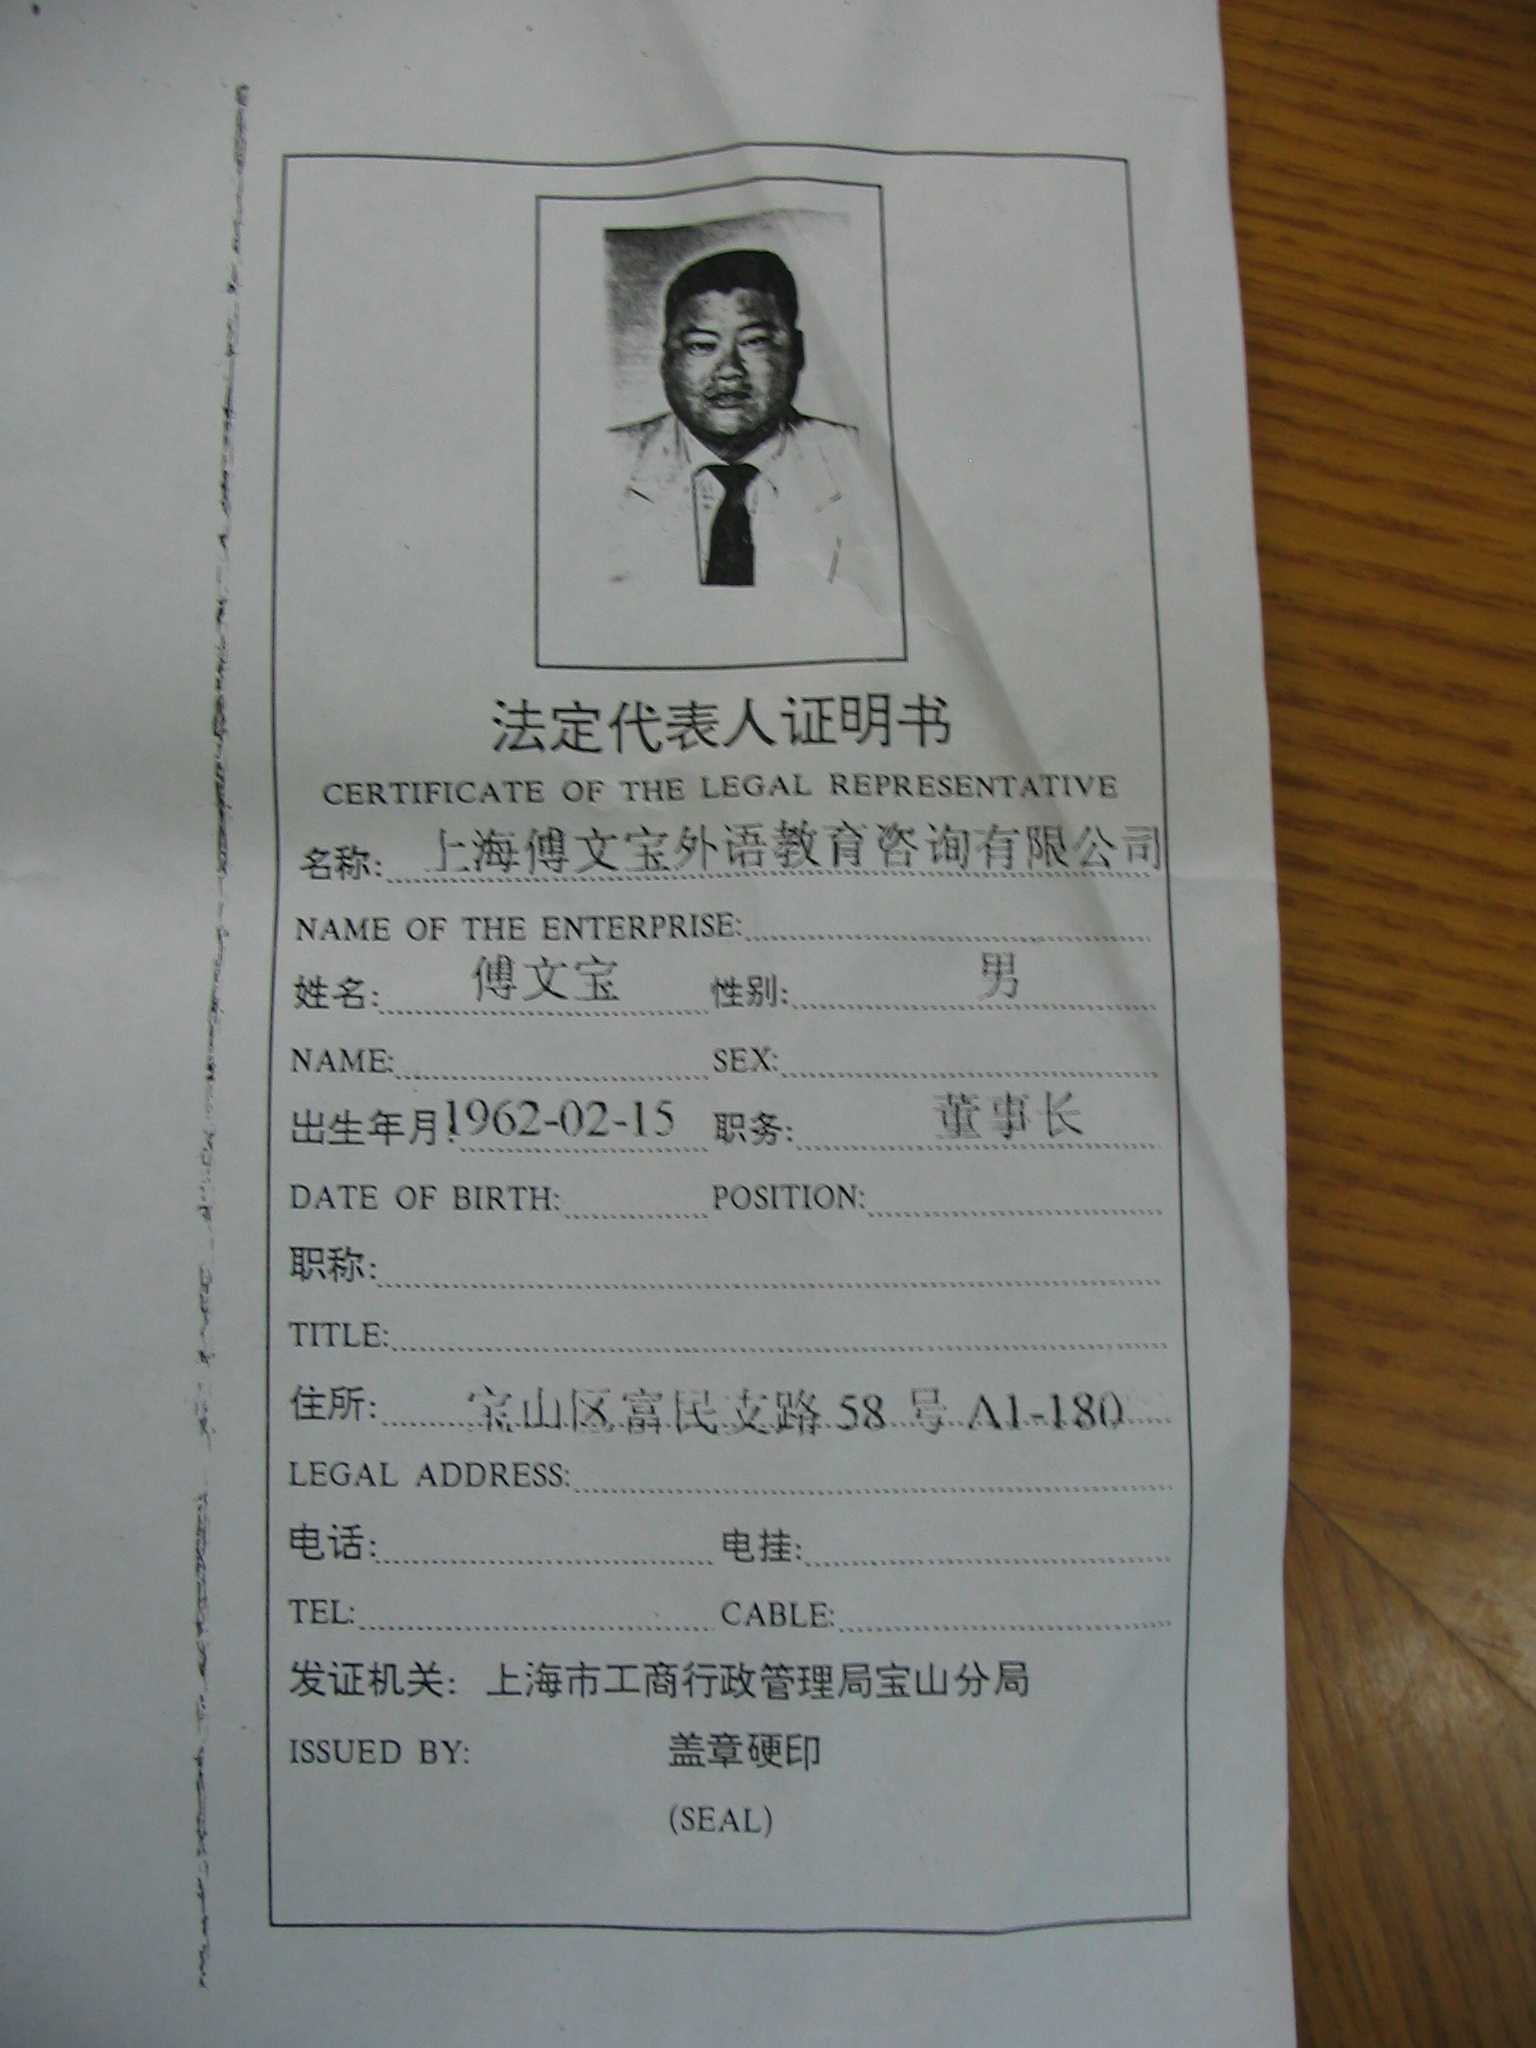 法定代表人证明书
CERTIFICATE OF THE LEGAL REPRESENTATIVE
名称: 上海傅文宝外语教育咨询有限公司
NAME OF THE ENTERPRISE:
姓名: 傅文宝 性别: 男
NAME: SEX:
出生年月: 1962-02-15 职务: 董事长
DATE OF BIRTH: POSITION:
职称:
TITLE:
住所: 宝山区富民支路 58 号 A1-180
LEGAL ADDRESS:
电话: 电挂:
TEL: CABLE:
发证机关: 上海市工商行政管理局宝山分局
ISSUED BY: 盖章硬印
(SEAL)